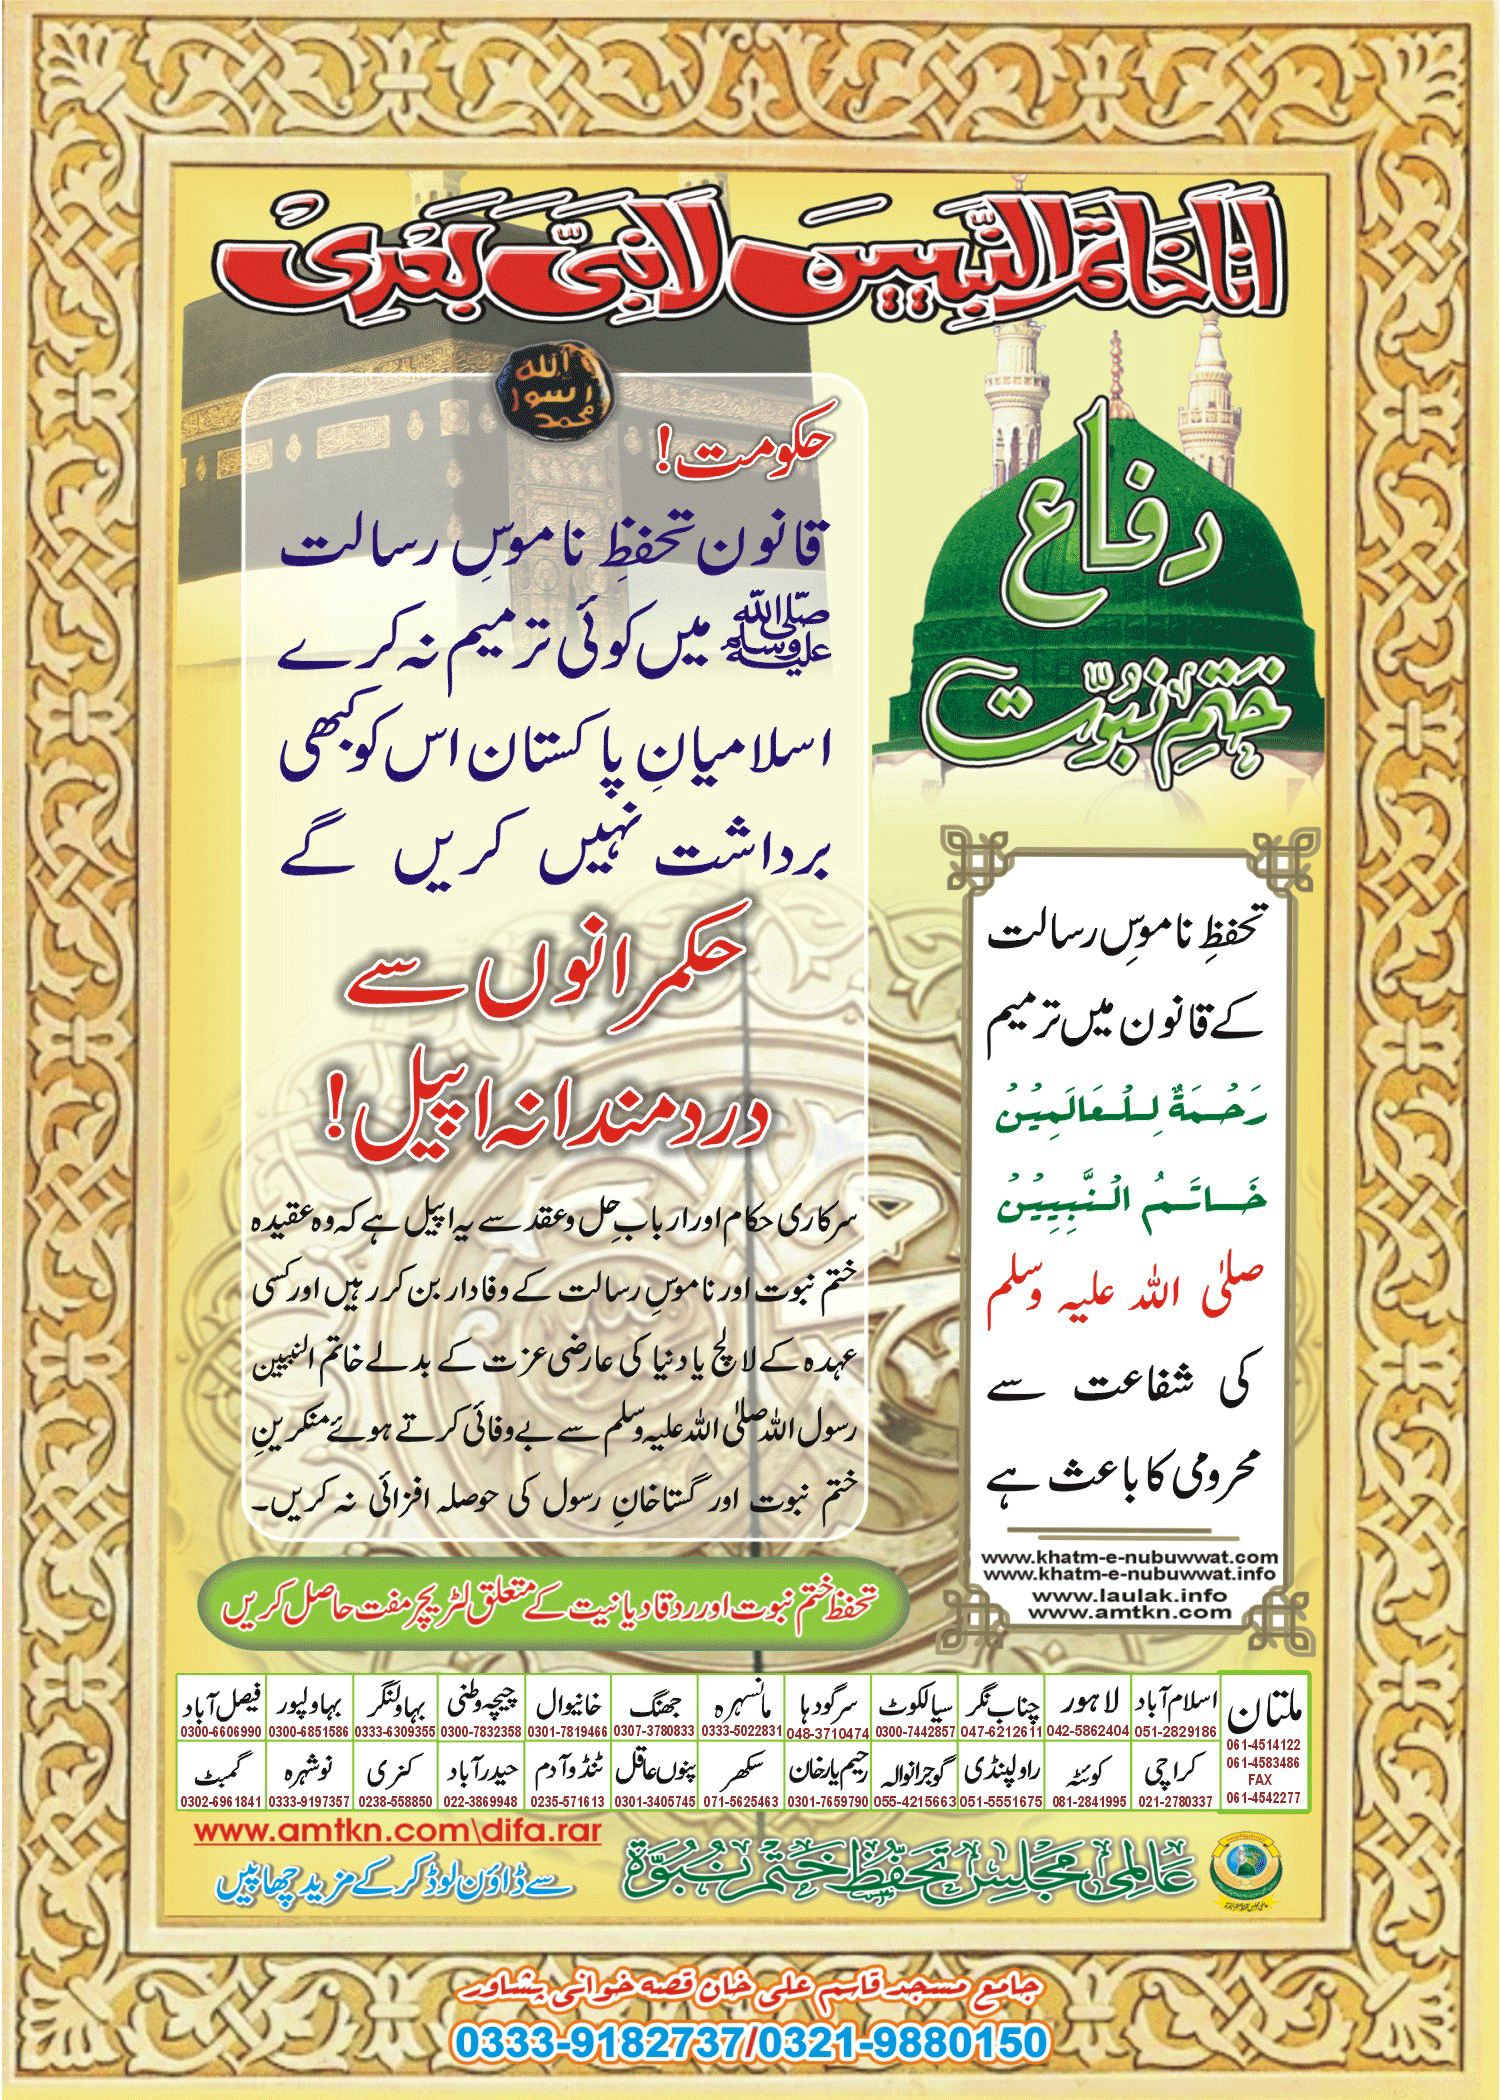 انا خاتم النبیین لا نبی بعدی
الله
رسول
محمد
دفاع
ختمِ نبوّت
حکومت!
قانون تحفظِ ناموسِ رسالت
ﷺ میں کوئی ترمیم نہ کرے
اسلامیانِ پاکستان اس کو کبھی
برداشت نہیں کریں گے
حکمرانوں سے
دردمندانہ اپیل!
سرکاری حکام اور اربابِ حل و عقد سے یہ اپیل ہے کہ وہ عقیدہ
ختم نبوت اور ناموسِ رسالت کے وفادار بن کر رہیں اور کسی
عہدہ کے لالچ یا دنیا کی عارضی عزت کے بدلے خاتم النبیین
رسول اللہ صلی اللہ علیہ وسلم سے بے وفائی کرتے ہوئے منکرینِ
ختم نبوت اور گستاخانِ رسول کی حوصلہ افزائی نہ کریں۔
تحفظِ ناموسِ رسالت
کے قانون میں ترمیم
رَحْمَةٌ لِلْعَالَمِيْنْ
خَاتَمُ النَّبِيِيْنْ
صلی اللہ علیہ وسلم
کی شفاعت سے
محرومی کا باعث ہے
www.khatm-e-nubuwwat.com
www.khatm-e-nubuwwat.info
www.laulak.info
www.amtkn.com
تحفظ ختم نبوت اور رد قادیانیت کے متعلق لٹریچر مفت حاصل کریں
ملتان 061-4514122 061-4583486 FAX 061-4542277
اسلام آباد 051-2829186
لاہور 042-5862404
چناب نگر 047-6212611
سیالکوٹ 0300-7442857
سرگودہا 048-3710474
مانسہرہ 0333-5022831
جھنگ 0307-3780833
خانیوال 0301-7819466
چیچہ وطنی 0300-7832358
بہاولنگر 0333-6309355
بہاولپور 0300-6851586
فیصل آباد 0300-6606990
کراچی 021-2780337
کوئٹہ 081-2841995
راولپنڈی 051-5551675
گوجرانوالہ 055-4215663
رحیم یار خان 0301-7659790
سکھر 071-5625463
پنوں عاقل 0301-3405745
ٹنڈو آدم 0235-571613
حیدرآباد 022-3869948
کنری 0238-558850
نوشہرہ 0333-9197357
گمبٹ 0302-6961841
www.amtkn.com\difa.rar
سے ڈاؤن لوڈ کر کے مزید چھاپیں
عالمی مجلس تحفظ ختم نبوۃ
جامع مسجد قاسم علی خان قصہ خوانی پشاور
0333-9182737/0321-9880150